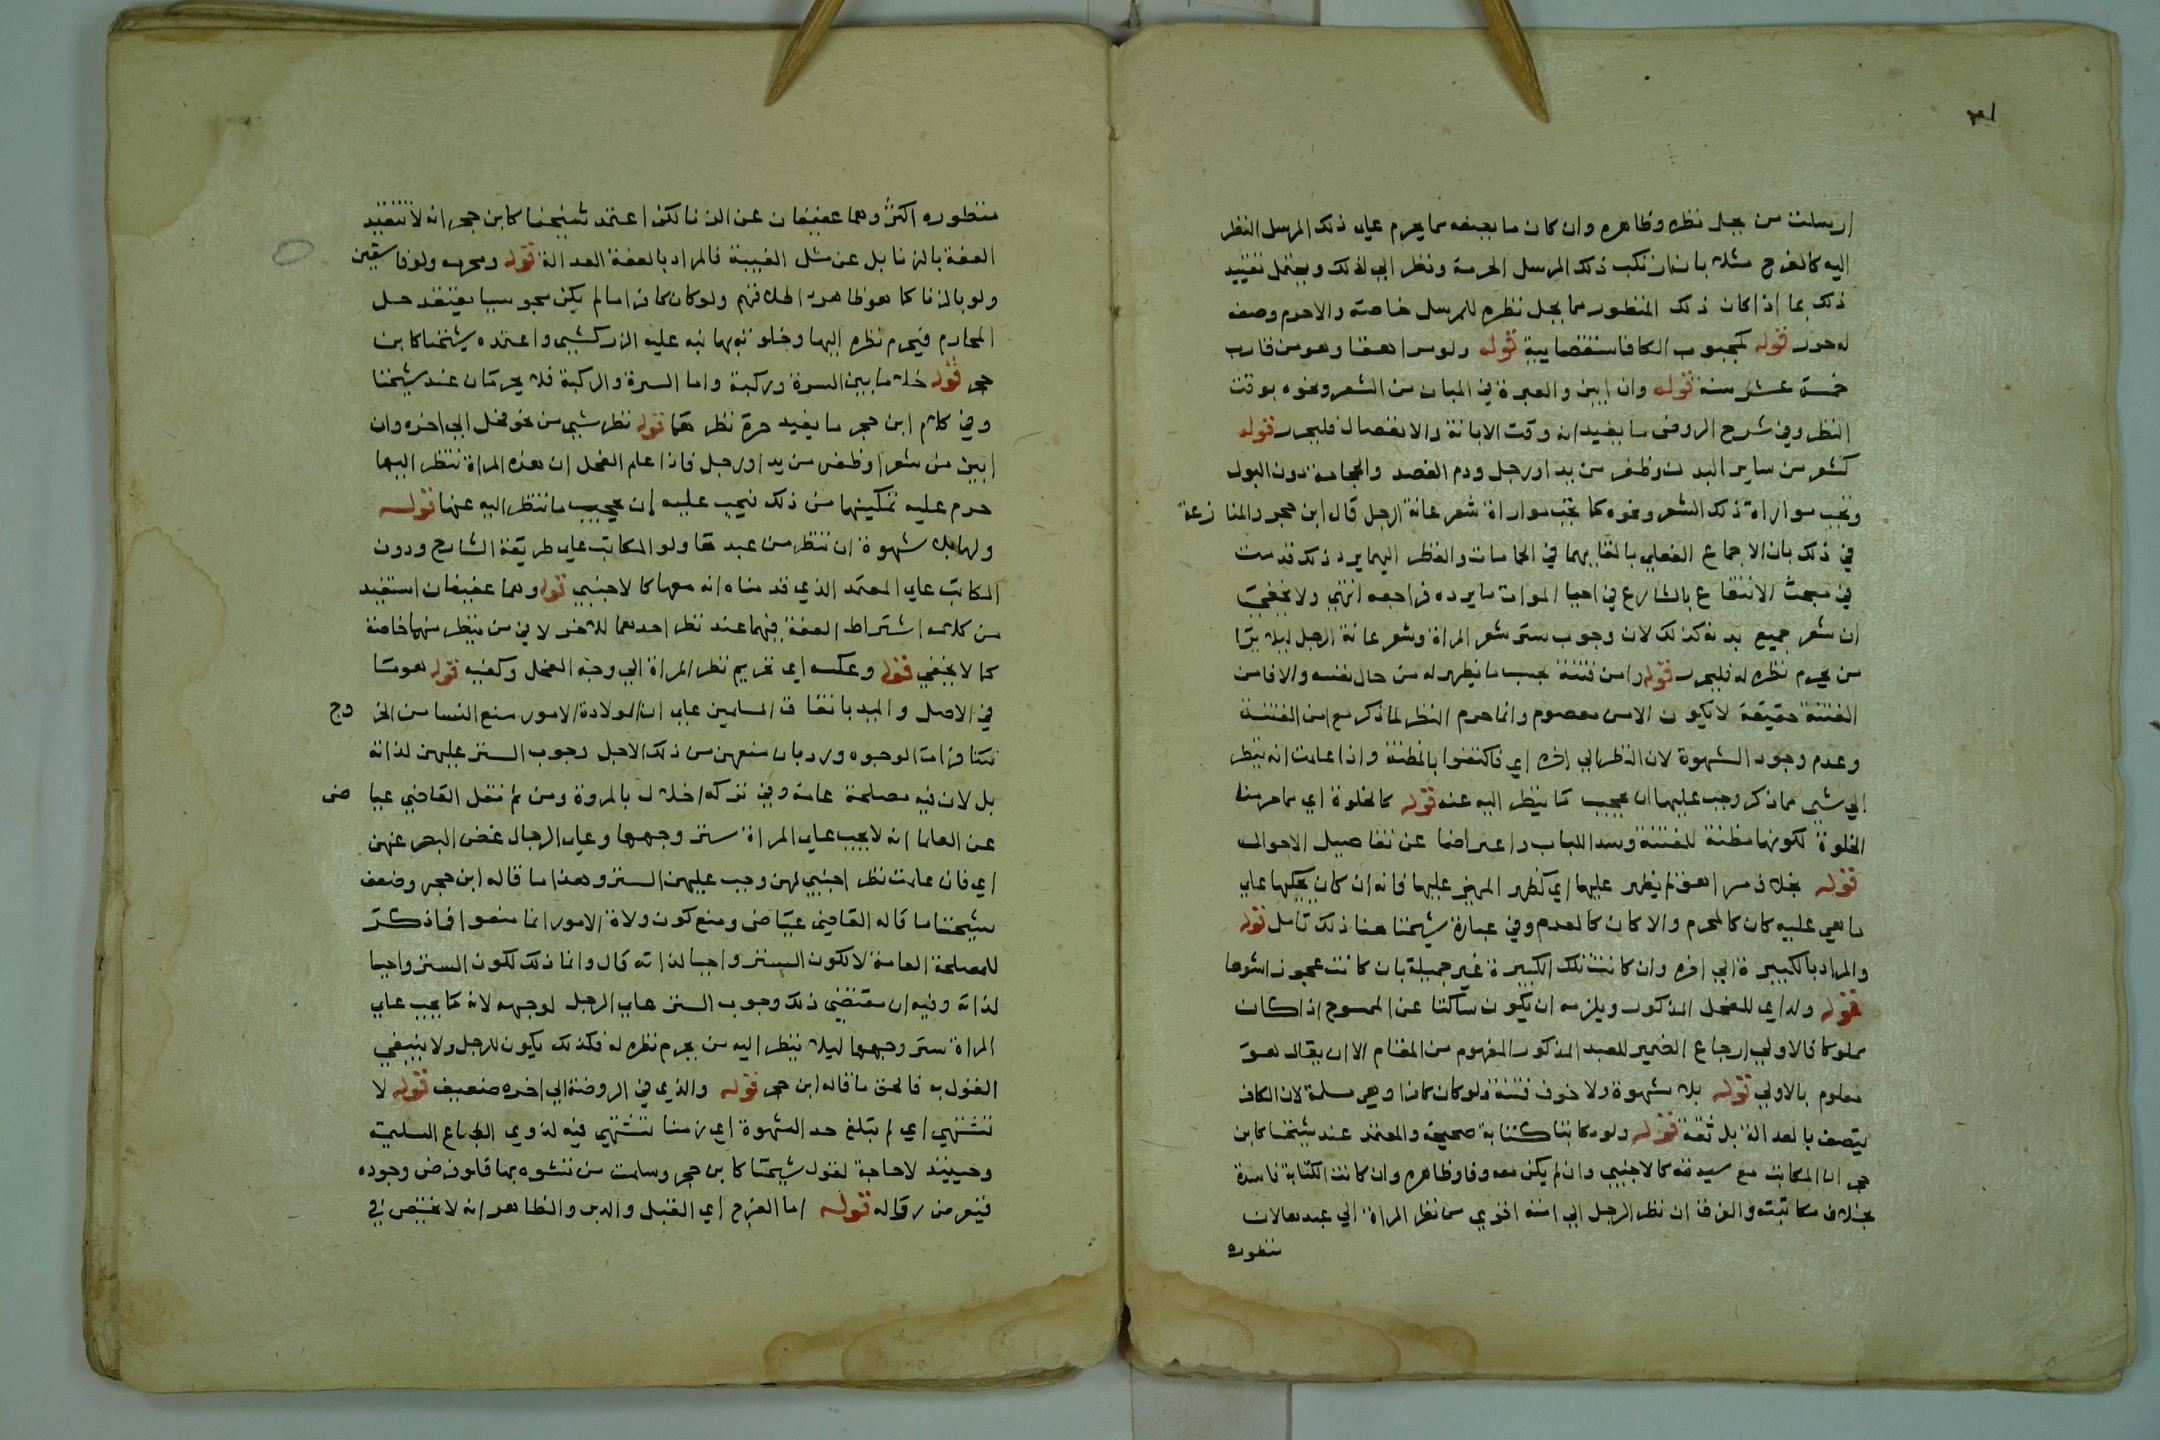 ارسلت من يحل نظره وظاهره وان كان ما بجيفه مما يحرم علي ذلك المرسل النظر
اليه كالفرج مثلا بان ارتكب ذلك المرسل الحرمة ونظر الي ذلك ويحتمل تقييد
ذلك بما اذا كان ذلك المنظور مما يحل نظره للمرسل خاصة والاحرم وصفه
له حرر قوله كمجبوب الكاف استقصاييه قوله ولو مراهقا وهو من قارب
خمسة عشر سنة قوله وان ابين والعبرة في المبان من الشعر ونحوه بوقت
النظر وفي شرح الروض ما يفيد انه وقت الابانة والانفصال فليحرر قوله
كشعر من ساير البدن وظفر من يد او رجل ودم الفصد والحجامة دون البول
وتجب مواراة ذلك الشعر ونحوه كما تجب مواراة شعر عانة الرجل قال ابن حجر والمنازعة
في ذلك بان الاجماع الفعلي بالقايهما في الحمامات والنظر اليهما يرد ذلك قدمت
في مبحث الانتفاع بالشارع في احيا الموات ما يرده فراجعه انتهي ولا يخفي
ان شعر جميع بدنه كذلك لان وجوب ستر شعر المراة وشعر عانة الرجل ليلا يرا
من يحرم نظره له فليحرر قوله وامن فتنة بحسب ما يظهر له من حال نفسه والا فامن
الفتنة حقيقة لا يكون الا من معصوم وانما حرم النظر لما ذكر مع امن الفتنة
وعدم وجود الشهوة لان النظر الي اخره اي فاكتفوا بالمظنة واذا علمت انه ينظر
الي شي مما ذكر وجب عليها ان تحجب ما ينظر اليه عنه قوله كالخلوة اي ما حرمت
الخلوة لكونها مظنة للفتنة وسدا للباب واعراضا عن تفاصيل الاحوال
قوله بخلاف مراهق لم يظهر عليها اي كظهر المهيز عليها فانه ان كان يحكيها علي
ما هي عليه كان كالمحرم والا كان كالعدم وفي عبارة شيخنا هنا ذلك تامل قوله
والمراد بالكبيرة الي اخره وان كانت تلك الكبيرة غير جميلة بان كانت عجوزا شوها
قوله وله اي للفحل المذكور ويلزمه ان يكون ساكتا عن الممسوح اذا كان
مملوكا فالاولي ارجاع الضمير للعبد المذكور المفهوم من المقام الا ان يقال هو
معلوم بالاولي قوله بلا شهوة ولا خوف فتنة ولو كان كافرا وهي مسلمة لان الكافر
يتصف بالعدالة بل ثقة قوله ولو مكاتبا كتابة صحيحة والمعتمد عند شيخنا كابن
حجر ان المكاتب مع سيدته كالاجنبي وان لم يكن معه وفا وظاهره وان كانت الكتابة فاسدة
بخلاف مكاتبته والفرق ان نظر الرجل الي امته اقوي من نظر المراة الي عبدها لان
منظوره
منظوره اكثر وهما عفيفان عن الزنا لكن اعتمد شيخنا كابن حجر انه لا تتقيد
العفة بالزنا بل عن مثل الغيبة فالمراد بالعفة العدالة قوله ومحرمه ولو فاسقين
ولو بالزنا كما هو ظاهر اطلاقهم ولو كان كافرا ما لم يكن مجوسيا يعتقد حل
المحارم فيحرم نظره اليها وخلوته بها نبه عليه الزركشي واعتمده شيخنا كابن
حجر قوله خلا ما بين السرة وركبة واما السرة والركبة فلا يحرمان عند شيخنا
وفي كلام ابن حجر ما يفيد حرمة نظرهما قوله نظر شي من نحو فحل الي اخره وان
ابين من شعر او ظفر من يد او رجل فاذا علم الفحل ان هذه المراة تنظر اليها
حرم عليه تمكينها من ذلك فيجب عليه ان يحجب ما تنظر اليه عنها قوله
ولها بلا شهوة ان تنظر من عبدها ولو المكاتب علي طريقة الشارح ودون
المكاتب علي المعتمد الذي قدمناه انه معها كالاجنبي قوله وهما عفيفان استفيد
من كلامه اشتراط العفة فيهما عند نظر احدهما للاخر لا في من ينظر منهما خاصة
كما لا يخفي قوله وعكسه اي تحريم نظر المراة الي وجه الفحل وكفيه قوله هو مما
في الاصل والبد باتفاق المسلمين علي ان الولادة الامور منع النسا من الخروج
سافرات الوجوه ورد بان منعهن من ذلك لا لاجل وجوب الستر عليهن لذاته
بل لان فيه مصلحة عامة وفي تركه اخلال بالمروة ومن ثم نقل القاضي عياض
عن العلما انه لا يجب علي المراة ستر وجهها وعلي الرجال غض البصر عنهن
اي فان علمت نظر اجنبي لهن وجب عليهن الستر وهذا ما قاله ابن حجر وضعف
شيخنا ما قاله القاضي عياض ومنع كون ولاة الامور انما منعوا فما ذكر
للمصلحة العامة لا لكون الستر واجبا لذاته قال وانما ذلك لكون الستر واجبا
لذاته وفيه ان مقتضي ذلك وجوب الستر علي الرجل لوجهه لانه كما يجب علي
المراة ستر وجهها ليلا ينظر اليه من يحرم نظره له فكذلك يكون للرجل ولا ينبغي
القول به فالحق ما قاله ابن حجر قوله والذي في الروضة الي اخره ضعيف قوله لا
تشتهي اي لم تبلغ حد الشهوة اي زمنا تشتهي فيه لذوي الطباع السليمة
وحينيذ لا حاجة لقول شيخنا كابن حجر وسلمت من تشوه بها قلو فرض وجوده
فيفرض زواله قوله اما الفرج اي القبل والدبر والظاهر انه لا يختص في